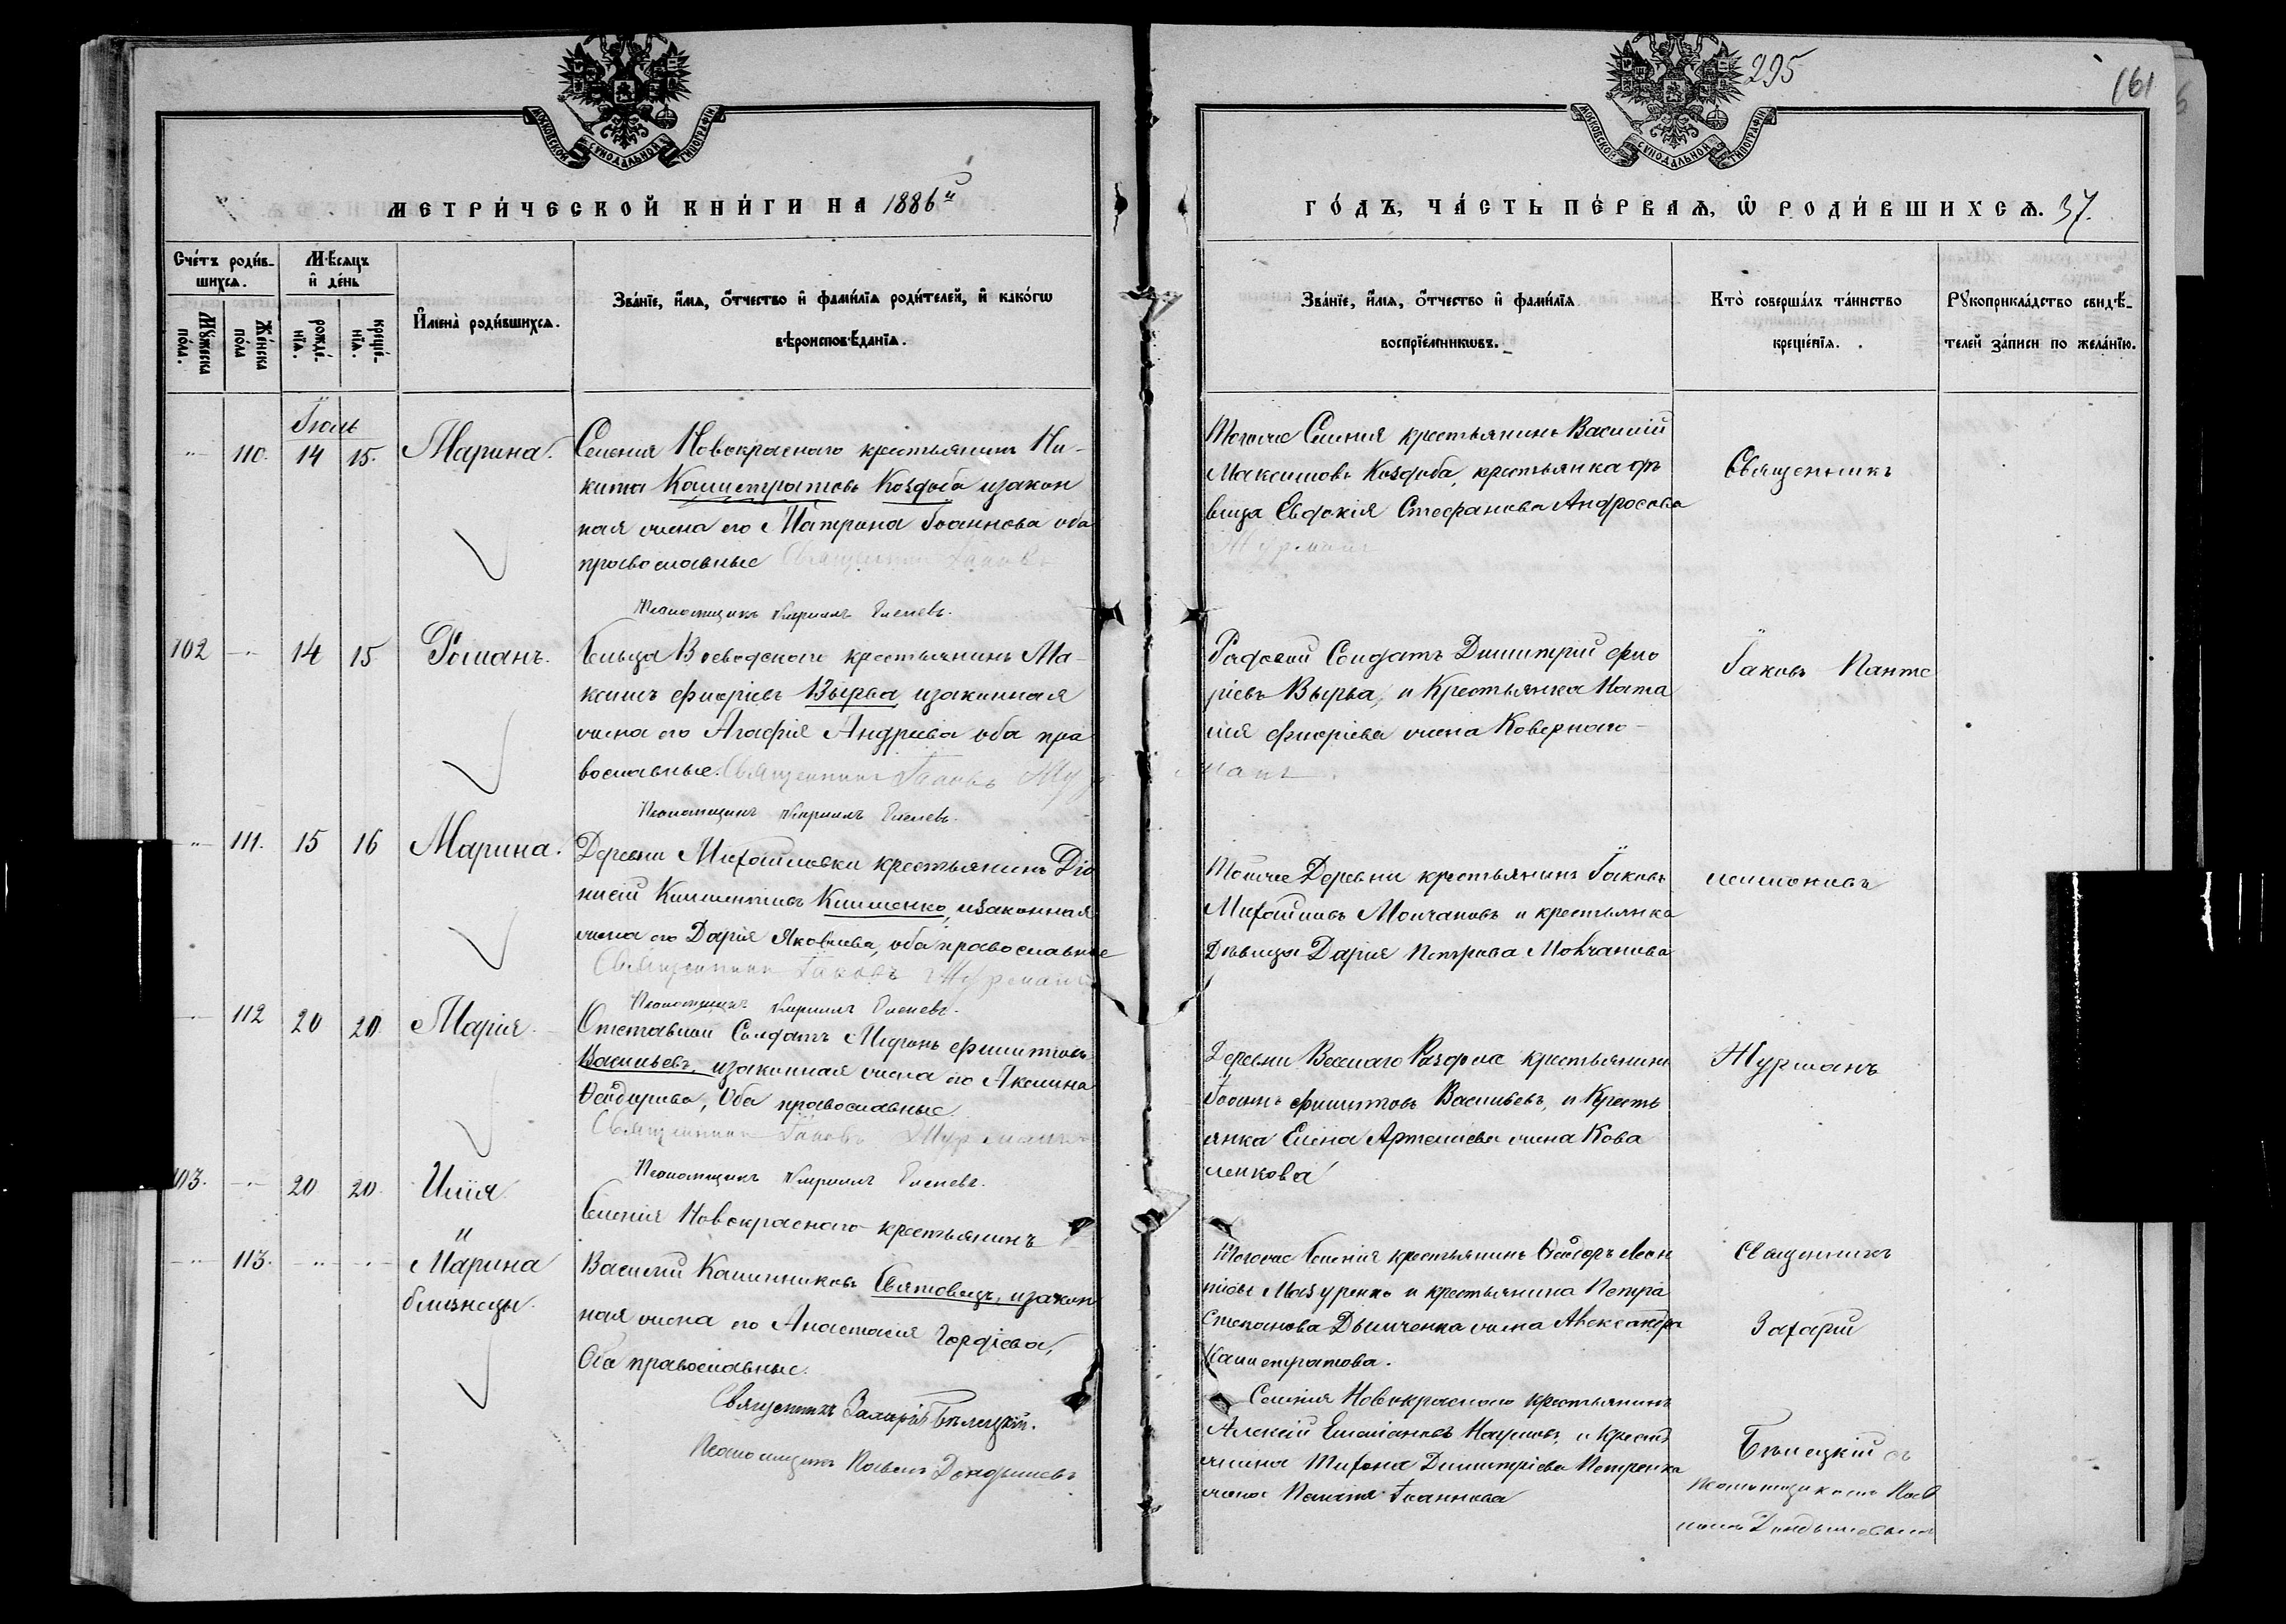 295
161
МОСКОВСКОЙ СѴНОДАЛЬНОЙ ТИПОГРАФІИ
МОСКОВСКОЙ СѴНОДАЛЬНОЙ ТИПОГРАФІИ
МЕТРИ́ЧЕСКОЙ КНИ́ГИ НА 1886й
ГО́ДЪ, ЧА́СТЬ ПЕ́РВАѦ, Ѡ РОДИ́ВШИХСѦ. 37.
Сче́тъ роди́в-
шихсѧ.
Мꙋ́жеска
по́ла.
Же́нска
по́ла
Мѣ́сѧцъ
и҆ де́нь
рожде́-
нїѧ.
креще́-
нїѧ.
И҆мена̀ роди́вшихсѧ.
Зва́нїе, и҆́мѧ, ѻ҆́тчество и҆ фамѝлїѧ роди́телей, и҆ како́гѡ
вѣроисповѣ́данїѧ.
Зва́нїе, и҆́мѧ, ѻ҆́тчество и҆ фамѝлїѧ
воспрїе́мникѡвъ.
Кто̀ соверша́лъ та́инство
креще́нїѧ.
Рꙋкоприкла́дство свидѣ́-
телей за́писи по жела́нїю.
Іюль
110. 14 15. Марина.
Селенія Новокраснаго крестьянинъ Ни-
кита Калистратовъ Коздоба изакон
ная жена его Матрона Іоаннова оба
православные Священникъ Іаковъ
Псаломщикъ Кириллъ Еленевъ.
Тогоже Селенія крестьянинъ Василій
Максимовъ Коздоба, крестьянка дѣ
вица Евдокія Стефанова Андросова
Журманъ
Священникъ
102 14 15 Романъ.
Сельца Воеводскаго крестьянинъ Ма-
ксимъ Флоріевъ Вырва изаконная
жена его Агафія Андріева оба пра
вославные. Священникъ Іаковъ Жур
Псаломщикъ Кириллъ Еленевъ.
Рядовой Солдатъ Димитрій Фло
ріевъ Вырва, и Крестьянка Ната
лія Флоріева жена Ковернаго
манъ
Іаковъ Панте
111. 15 16 Марина.
Деревни Михайловки крестьянинъ Діо
нисій Климентіевъ Клименко, изаконная
жена его Дарія Яковлева, оба православные
Священникъ Іаковъ Журманъ
Псаломщикъ Кириллъ Еленевъ.
Тойже Деревни крестьянинъ Іаковъ
Михайловъ Молчановъ и крестьянка
Дѣвица Дарія Петрова Молчанова
леимоновъ
112 20 20. Марія.
Отставной Солдатъ Миронъ Филитовъ
Васильевъ, изаконная жена его Акилина
Ѳеодорова, Оба православные
Священникъ Іаковъ Журманъ
Псаломщикъ Кириллъ Еленевъ.
Деревни Веселаго Раздола крестьянинъ
Іоаннъ Филитовъ Васильевъ, и Кресть
янка Елена Артеміева жена Кова
ленкова
Журманъ
103. 20 20. Илія
и
113. Марина
близнецы.
Селенія Новокраснаго крестьянинъ
Василій Калинниковъ Святовецъ, изакон
ная жена его Анастасія Гордіева,
Оба православные.
Священникъ Захарій Бѣлецкій.
Псаломщикъ Павелъ Дондышевъ
Тогоже Селенія крестьянинъ Ѳеодоръ Леон
тіевъ Мазуренко и крестьянина Петра
Степанова Дымченка жена Александра
Калистратова.
Селенія Новокраснаго крестьянинъ
Алексій Емеліановъ Наумовъ, и Крест
янина Тихона Димитріева Петренка
жена Пелагія Іоаннова
Священникъ
Захарій
Бѣлецкій съ
псаломщикомъ Пав
ломъ Дондышевымъ